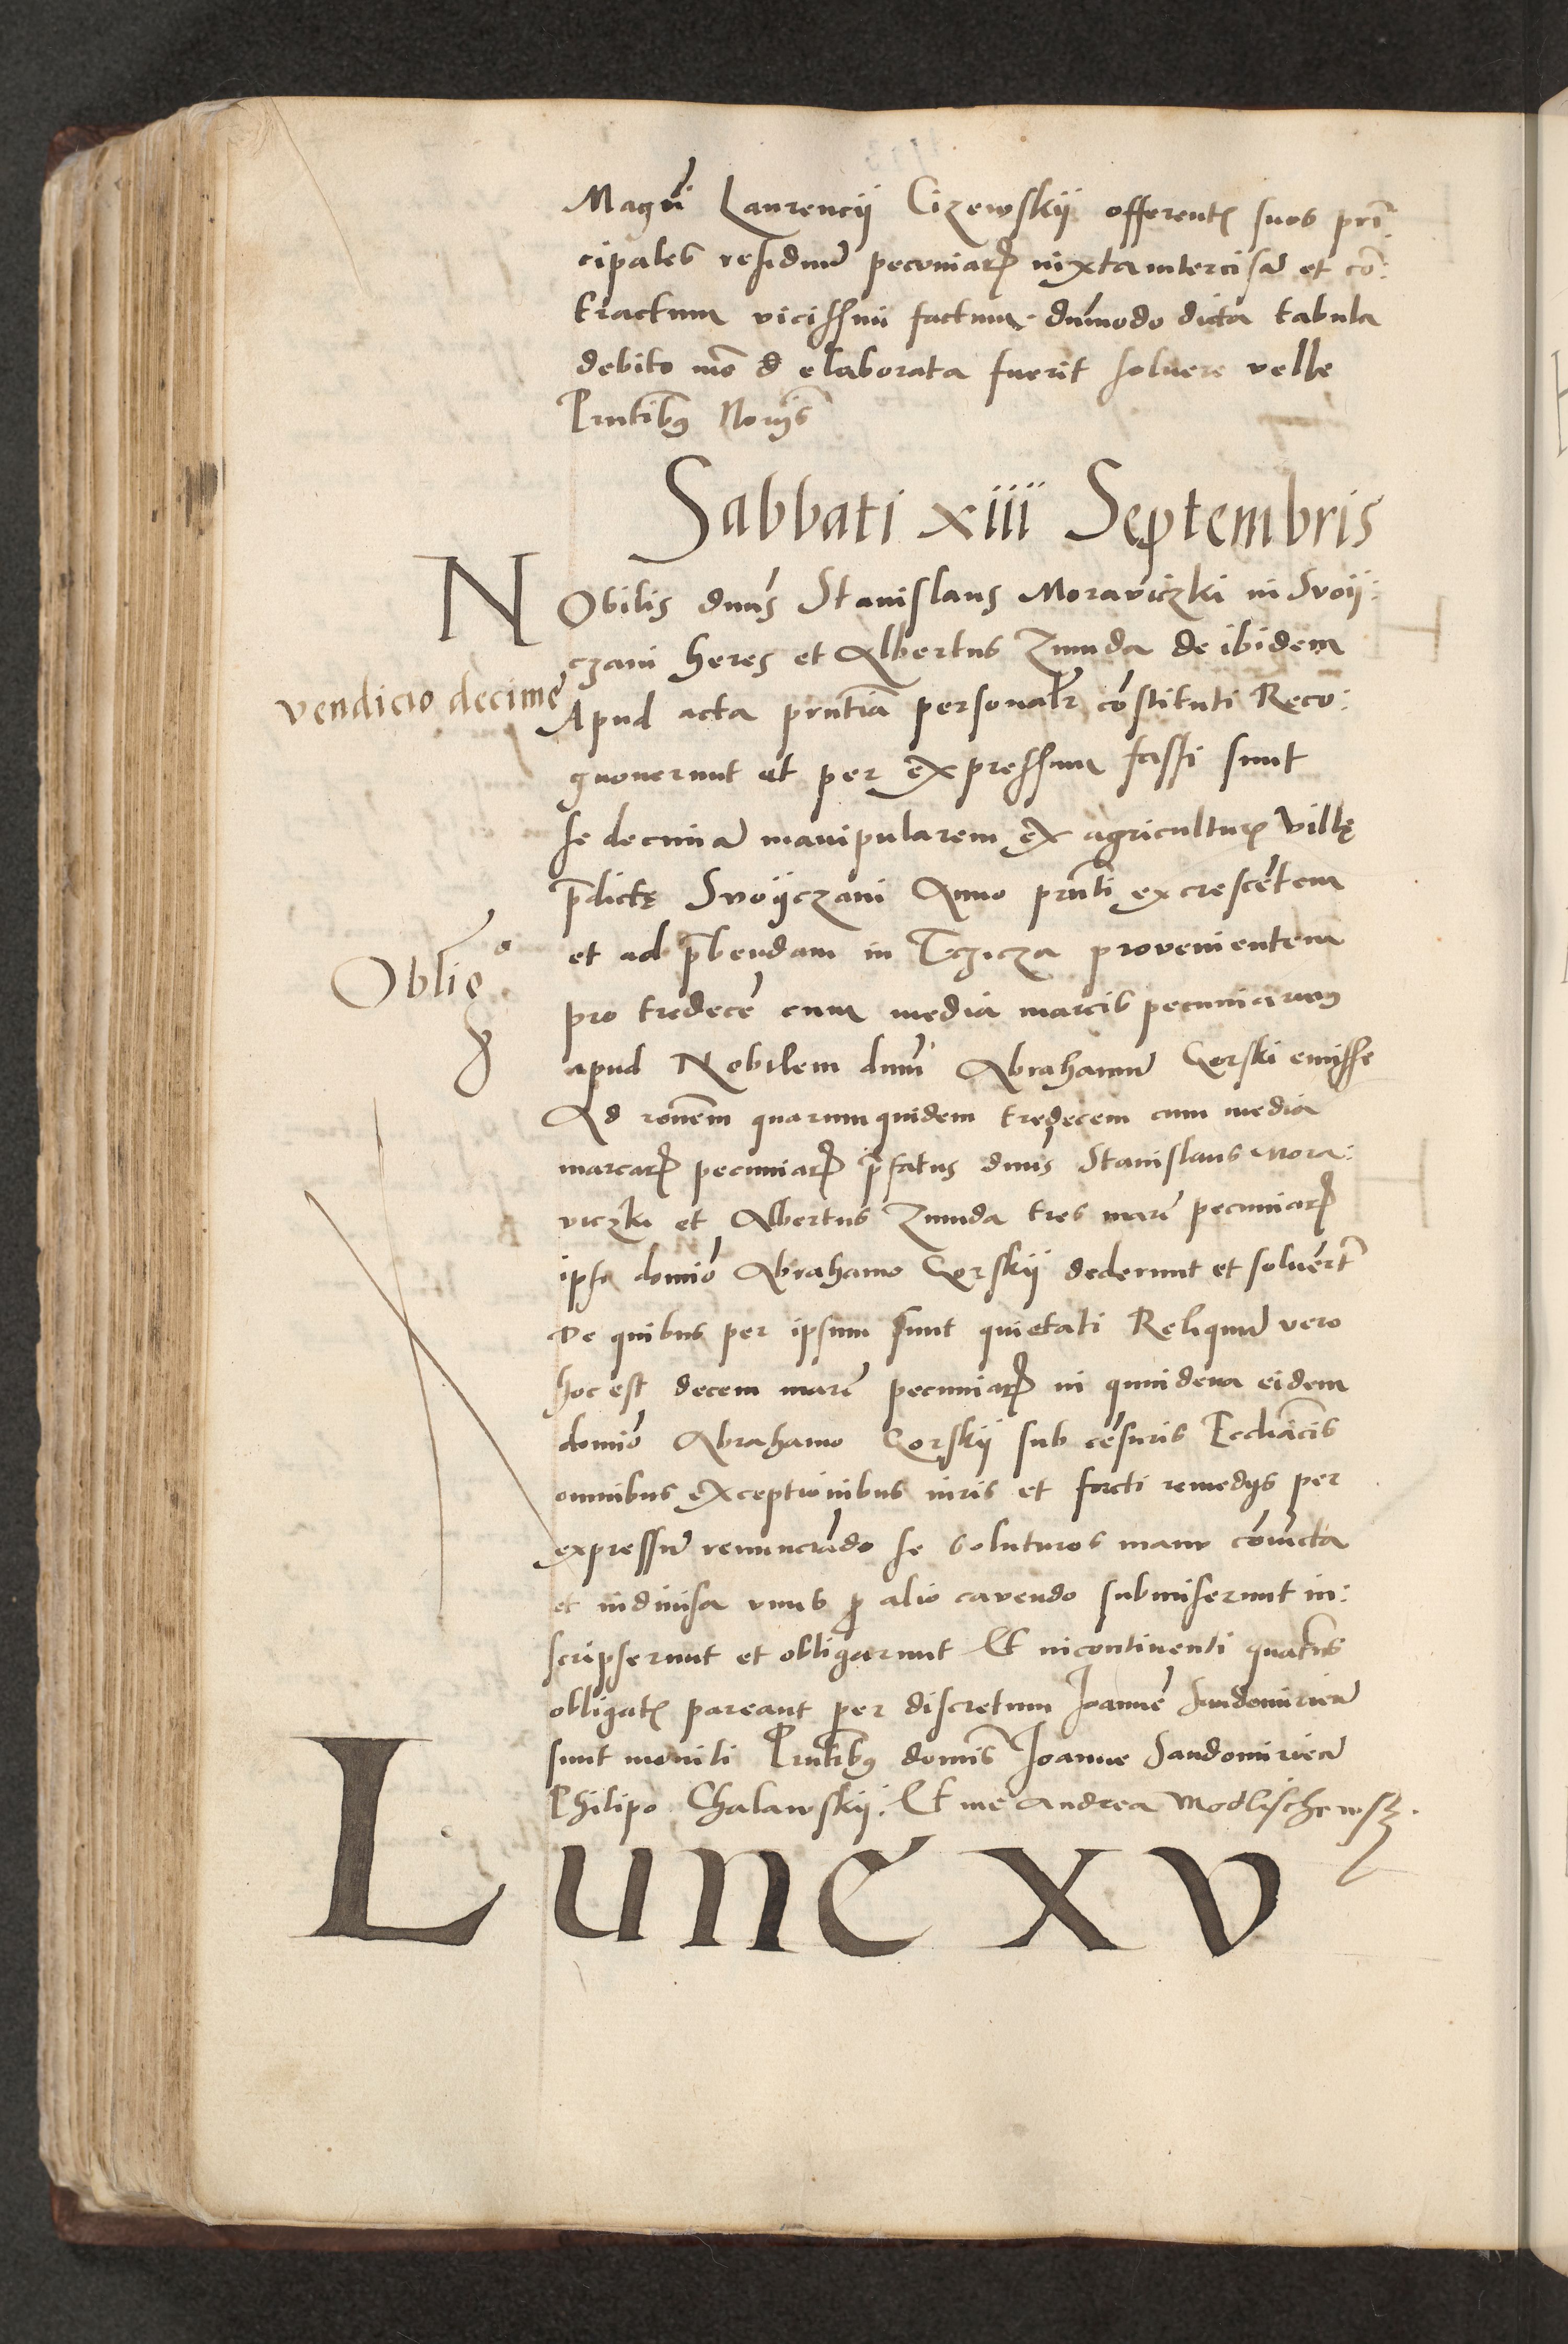 Magnͫ Laurencij Cizewskij offerentꝭ suos prī:
cipales residuū pecuniaꝝ iuxta intercisā et cō:
tractum vicissim factum. dūmodo dicta tabula
debito mō elaborata fuerit soluere velle
Pntibꝰ Norijs
Sabbati xiiii Septembris
NObilis dnūs Stanislaus Moraviczki in Svoij:
czani heres et Albertus Zmuda de ibidem
vendicio decimę
Apud acta pntia personalr constituti Reco:
gnouerunt et per expressum fassi sunt
se decimā manipularem ex agriculturꝭ villę
p̄dictę Svoijczani Anno pnti excrescētem
et ad p̄bendam in Tczicza provenientem
Oblig͞o
pro tredecē cum media marcis pecuniarum
apud Nobilem dnūm Abrahamū Gorski emisse
Ad ronem quarumquidem tredecem cum media
marcaꝝ pecuniaꝝ p̄fatus dnus Stanislaus Mora:
viczki et Albertus Zmuda tres marc̄ pecuniaꝝ
ipsi domiō Abrahamo Gorskij dederunt et soluert
De quibus per ipsum sunt quietati Reliquū vero
hoc est decem marc̄ pecuniaꝝ in quindena eidem
domiō Abrahamo Gorskij sub cēsuris Ecclīacis
omnibus exceptionibus iuris et facti remedijs per
expressū renunciādo se soluturos manu coniūcta
et indiuisa vnus ꝑ alio cavendo submiserunt in:
scripserunt et obligarunt Et incontinenti quatens
obligatꝭ pareant per discretum Joannē Sandomiriēn
sunt moniti Pntibꝰ domis Joanne Sandomiriēn
Philipo Chalawskij. Et me Andrea Modlischewsky.
Lunę xv